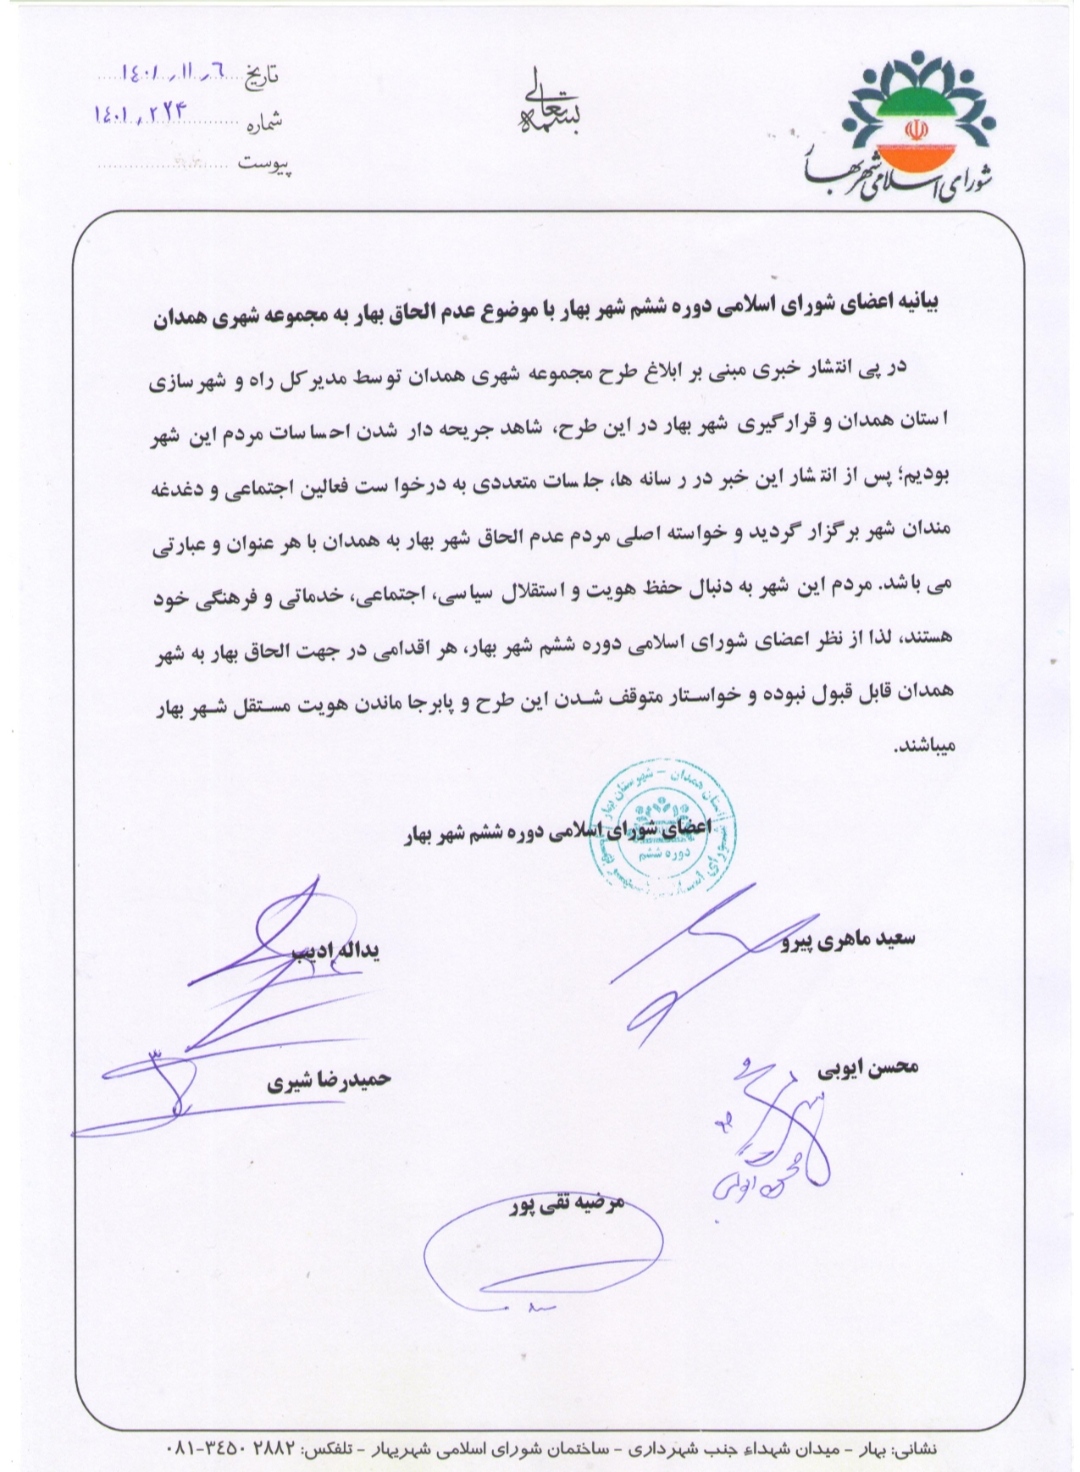 شورای اسلامی شهر بهار
بسمه تعالی
تاریخ ۱٤۰۱٫۱۱٫٦
شماره ۱٤۰۱٫۲۲۴
پیوست
بیانیه اعضای شورای اسلامی دوره ششم شهر بهار با موضوع عدم الحاق بهار به مجموعه شهری همدان
در پی انتشار خبری مبنی بر ابلاغ طرح مجموعه شهری همدان توسط مدیرکل راه و شهرسازی
استان همدان و قرارگیری شهر بهار در این طرح، شاهد جریحه دار شدن احساسات مردم این شهر
بودیم؛ پس از انتشار این خبر در رسانه ها، جلسات متعددی به درخواست فعالین اجتماعی و دغدغه
مندان شهر برگزار گردید و خواسته اصلی مردم عدم الحاق شهر بهار به همدان با هر عنوان و عبارتی
می باشد. مردم این شهر به دنبال حفظ هویت و استقلال سیاسی، اجتماعی، خدماتی و فرهنگی خود
هستند، لذا از نظر اعضای شورای اسلامی دوره ششم شهر بهار، هر اقدامی در جهت الحاق بهار به شهر
همدان قابل قبول نبوده و خواستار متوقف شدن این طرح و پابرجا ماندن هویت مستقل شهر بهار
میباشند.
استان همدان - شهرستان بهار
دوره ششم
اعضای شورای اسلامی دوره ششم شهر بهار
سعید ماهری پیرو
یداله ادیب
محسن ایوبی
حمیدرضا شیری
محسن ایوبی
مرضیه تقی پور
نشانی: بهار - میدان شهداء جنب شهرداری - ساختمان شورای اسلامی شهربهار - تلفکس: ۲۸۸۲ ۳٤٥۰-۰۸۱